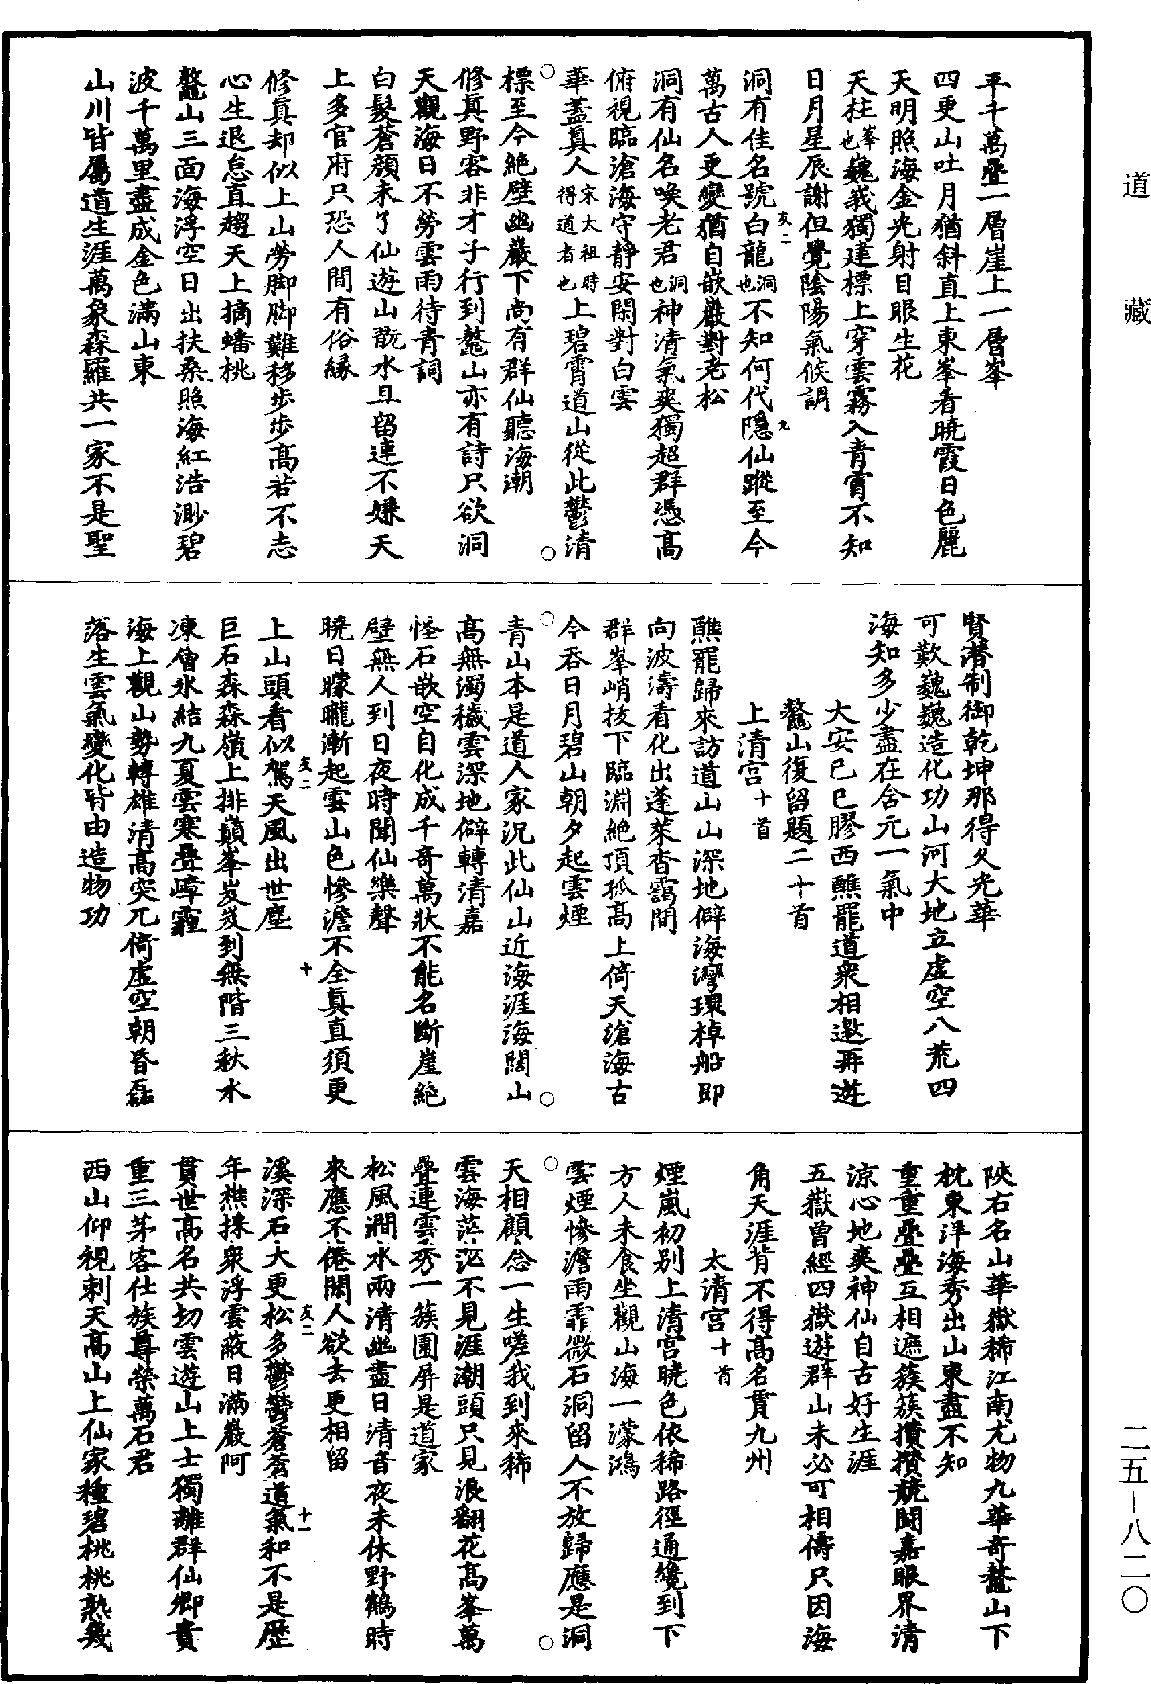 道藏
平千萬疊一層崖上一層峯
四更山吐月猶斜直上東峯看曉霞日色麗
天明照海金光射目眼生花
天柱峯也巍峩獨建標上穿雲霧入青霄不知
日月星辰謝但覺陰陽氣候調
洞有佳名號白龍洞也不知何代隱仙蹤至今
萬古人更變猶自嵌巖對老松
洞有仙名喚老君洞也神清氣爽獨超群憑高
俯視臨滄海守靜安閑對白雲
華蓋真人宋太祖時得道者也上碧霄道山從此鬱清
標至今絶壁幽巖下尚有群仙聽海潮
修真野客非才子行到鼇山亦有詩只欲洞
天觀海日不勞雲雨待青詞
白髮蒼顏未了仙遊山翫水且留連不嫌天
上多官府只恐人間有俗縁
修真却似上山勞脚脚難移步步高若不志
心生退怠直趨天上摘蟠桃
鼇山三面海浮空日出扶桑照海紅浩渺碧
波千萬里盡成金色滿山東
山川皆屬道生涯萬象森羅共一家不是聖
賢潛制御乾坤那得久光華
可歎巍巍造化功山河大地立虛空八荒四
海知多少盡在含元一氣中
大安己巳膠西醮罷道衆相邀再遊
鼇山復留題二十首
上清宮十首
醮罷歸來訪道山山深地僻海灣環棹船即
向波濤看化出蓬萊杳靄間
群峯峭拔下臨淵絶頂孤高上倚天滄海古
今吞日月碧山朝夕起雲煙
青山本是道人家況此仙山近海涯海闊山
高無濁穢雲深地僻轉清嘉
怪石嵌空自化成千奇萬狀不能名斷崖絶
壁無人到日夜時聞仙樂聲
曉日朦朧漸起雲山色慘澹不全真直須更
上山頭看似駕天風出世塵
巨石森森嶺上排巔峯岌岌到無階三秋水
凍層氷結九夏雲寒疊嶂霾
海上觀山勢轉雄清高突兀倚虛空朝昏磊
落生雲氣變化皆由造物功
陜右名山華嶽稀江南尤物九華奇鼇山下
枕東洋海秀出山東盡不知
重重疊疊互相遮簇簇攢攢競鬭嘉眼界清
涼心地爽神仙自古好生涯
五嶽曾經四嶽遊群山未必可相儔只因海
角天涯背不得高名貫九州
太清宮十首
煙嵐初别上清宮曉色依稀路徑通纔到下
方人未食坐觀山海一濛鴻
雲煙慘澹雨霏微石洞留人不放歸應是洞
天相顧念一生嗟我到來稀
雲海茫茫不見涯潮頭只見浪翻花高峯萬
疊連雲秀一簇圍屏是道家
松風澗水兩清幽盡日清音夜未休野鶴時
來應不倦閑人欲去更相留
溪深石大更松多鬱鬱蒼蒼道氣和不是歴
年樵採衆浮雲蔽日滿巖阿
貫世高名共切雲遊山上士獨離群仙鄉貴
重三茅客仕族尊榮萬石君
西山仰視刺天高山上仙家種碧桃桃熟幾
二五－八二〇